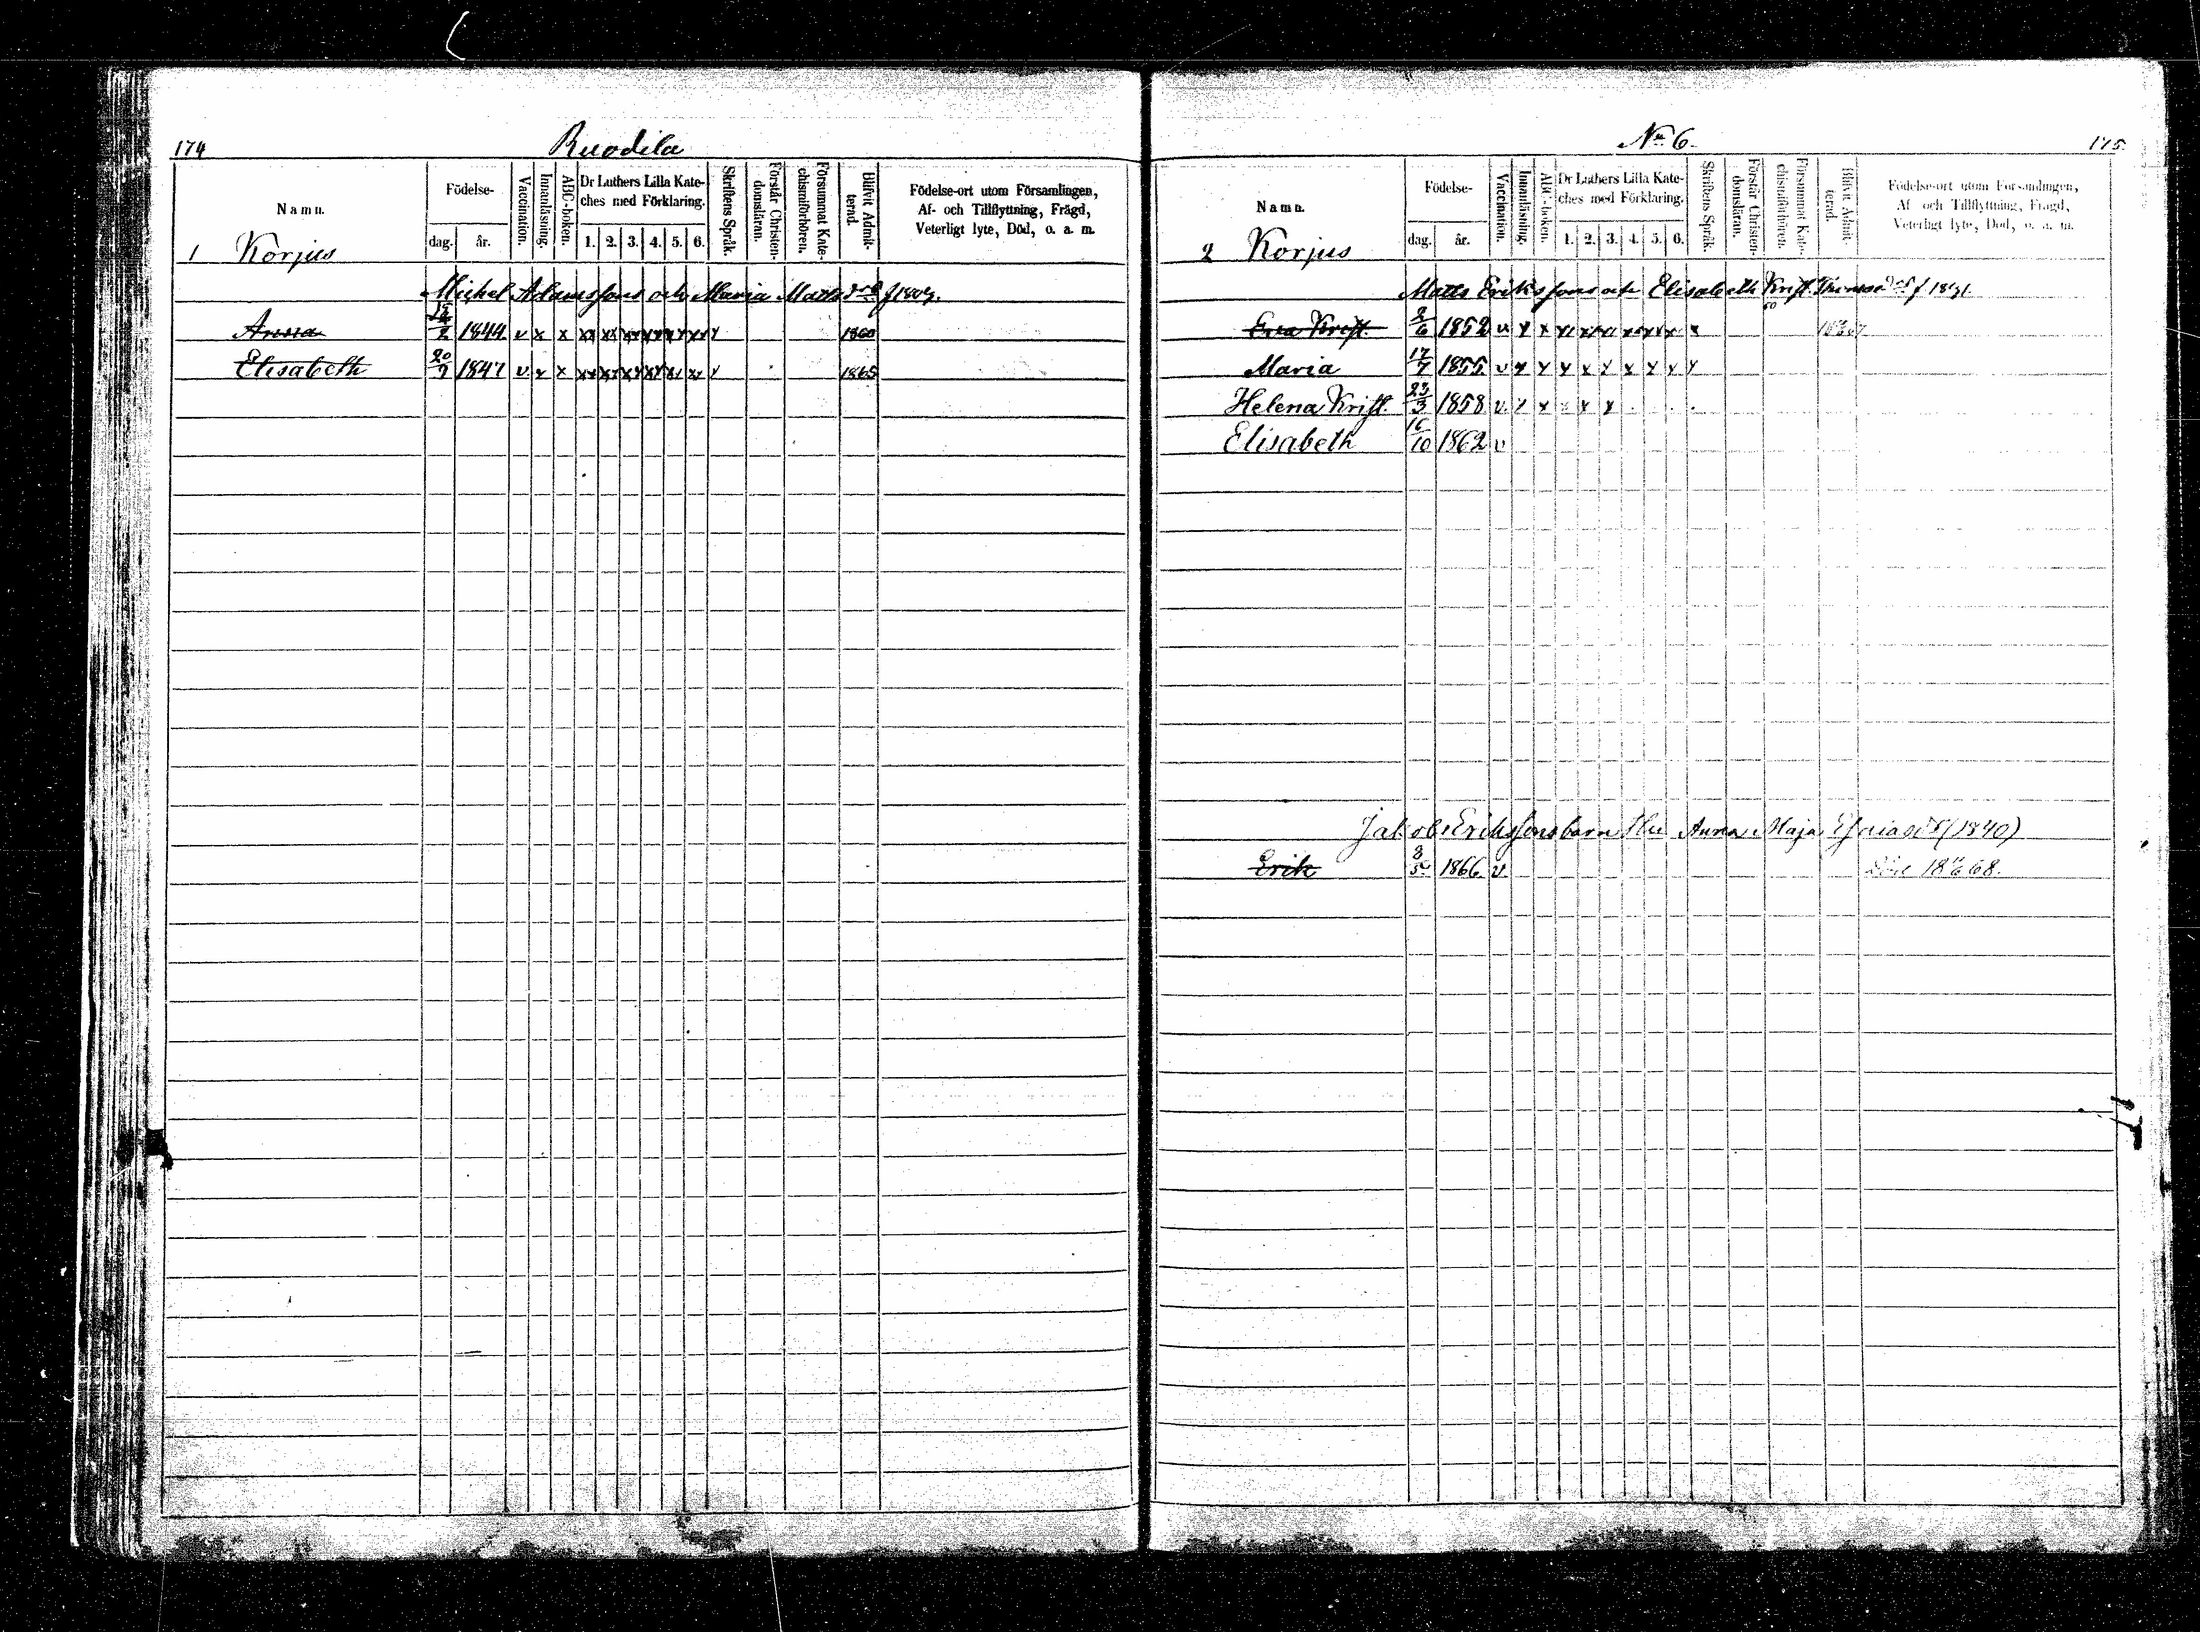 174 Ruodila
Namn. Födelse- dag. år. Vaccination. Innanläsning. ABC-boken. Dr Luthers Lilla Kate-ches med Förklaring. 1. 2. 3. 4. 5. 6. Skriftens Språk. Förstår Christen-domsläran. Försummat Kate-chismiförhören. Blifvit Admit-terad. Födelse-ort utom Församlingen, Af- och Tillflyttning, Frägd, Veterligt lyte, Död, o. a. m.
1 Korjus
Michel Adamssons och Maria Mattsdr
Anna 2 1844 v x x xx xx xx xx xx xx x 1860
Elisabeth 20/9 1847 v x x xx xx xx xx xx xx x 1865
No 6. 175
Namn. Födelse- dag. år. Vaccination. Innanläsning. ABC-boken. Dr Luthers Lilla Kate-ches med Förklaring. 1. 2. 3. 4. 5. 6. Skriftens Språk. Förstår Christen-domsläran. Försummat Kate-chismiförhören. Blifvit Admit-terad. Födelse-ort utom Församlingen, Af- och Tillflyttning, Frägd, Veterligt lyte, Död, o. a. m.
2 Korjus
Matts Erikssons och Elisabeth Krist.
Eva Krist. 2/6 1852 v x x
Maria 17/7 1855 v x x x x x x x x x
Helena Krist. 23/3 1858 v x x x x
Elisabeth 16/10 1862 v
Jakob Erikssons barn Anna Maja (1840)
Erik 8/5 1866. v.